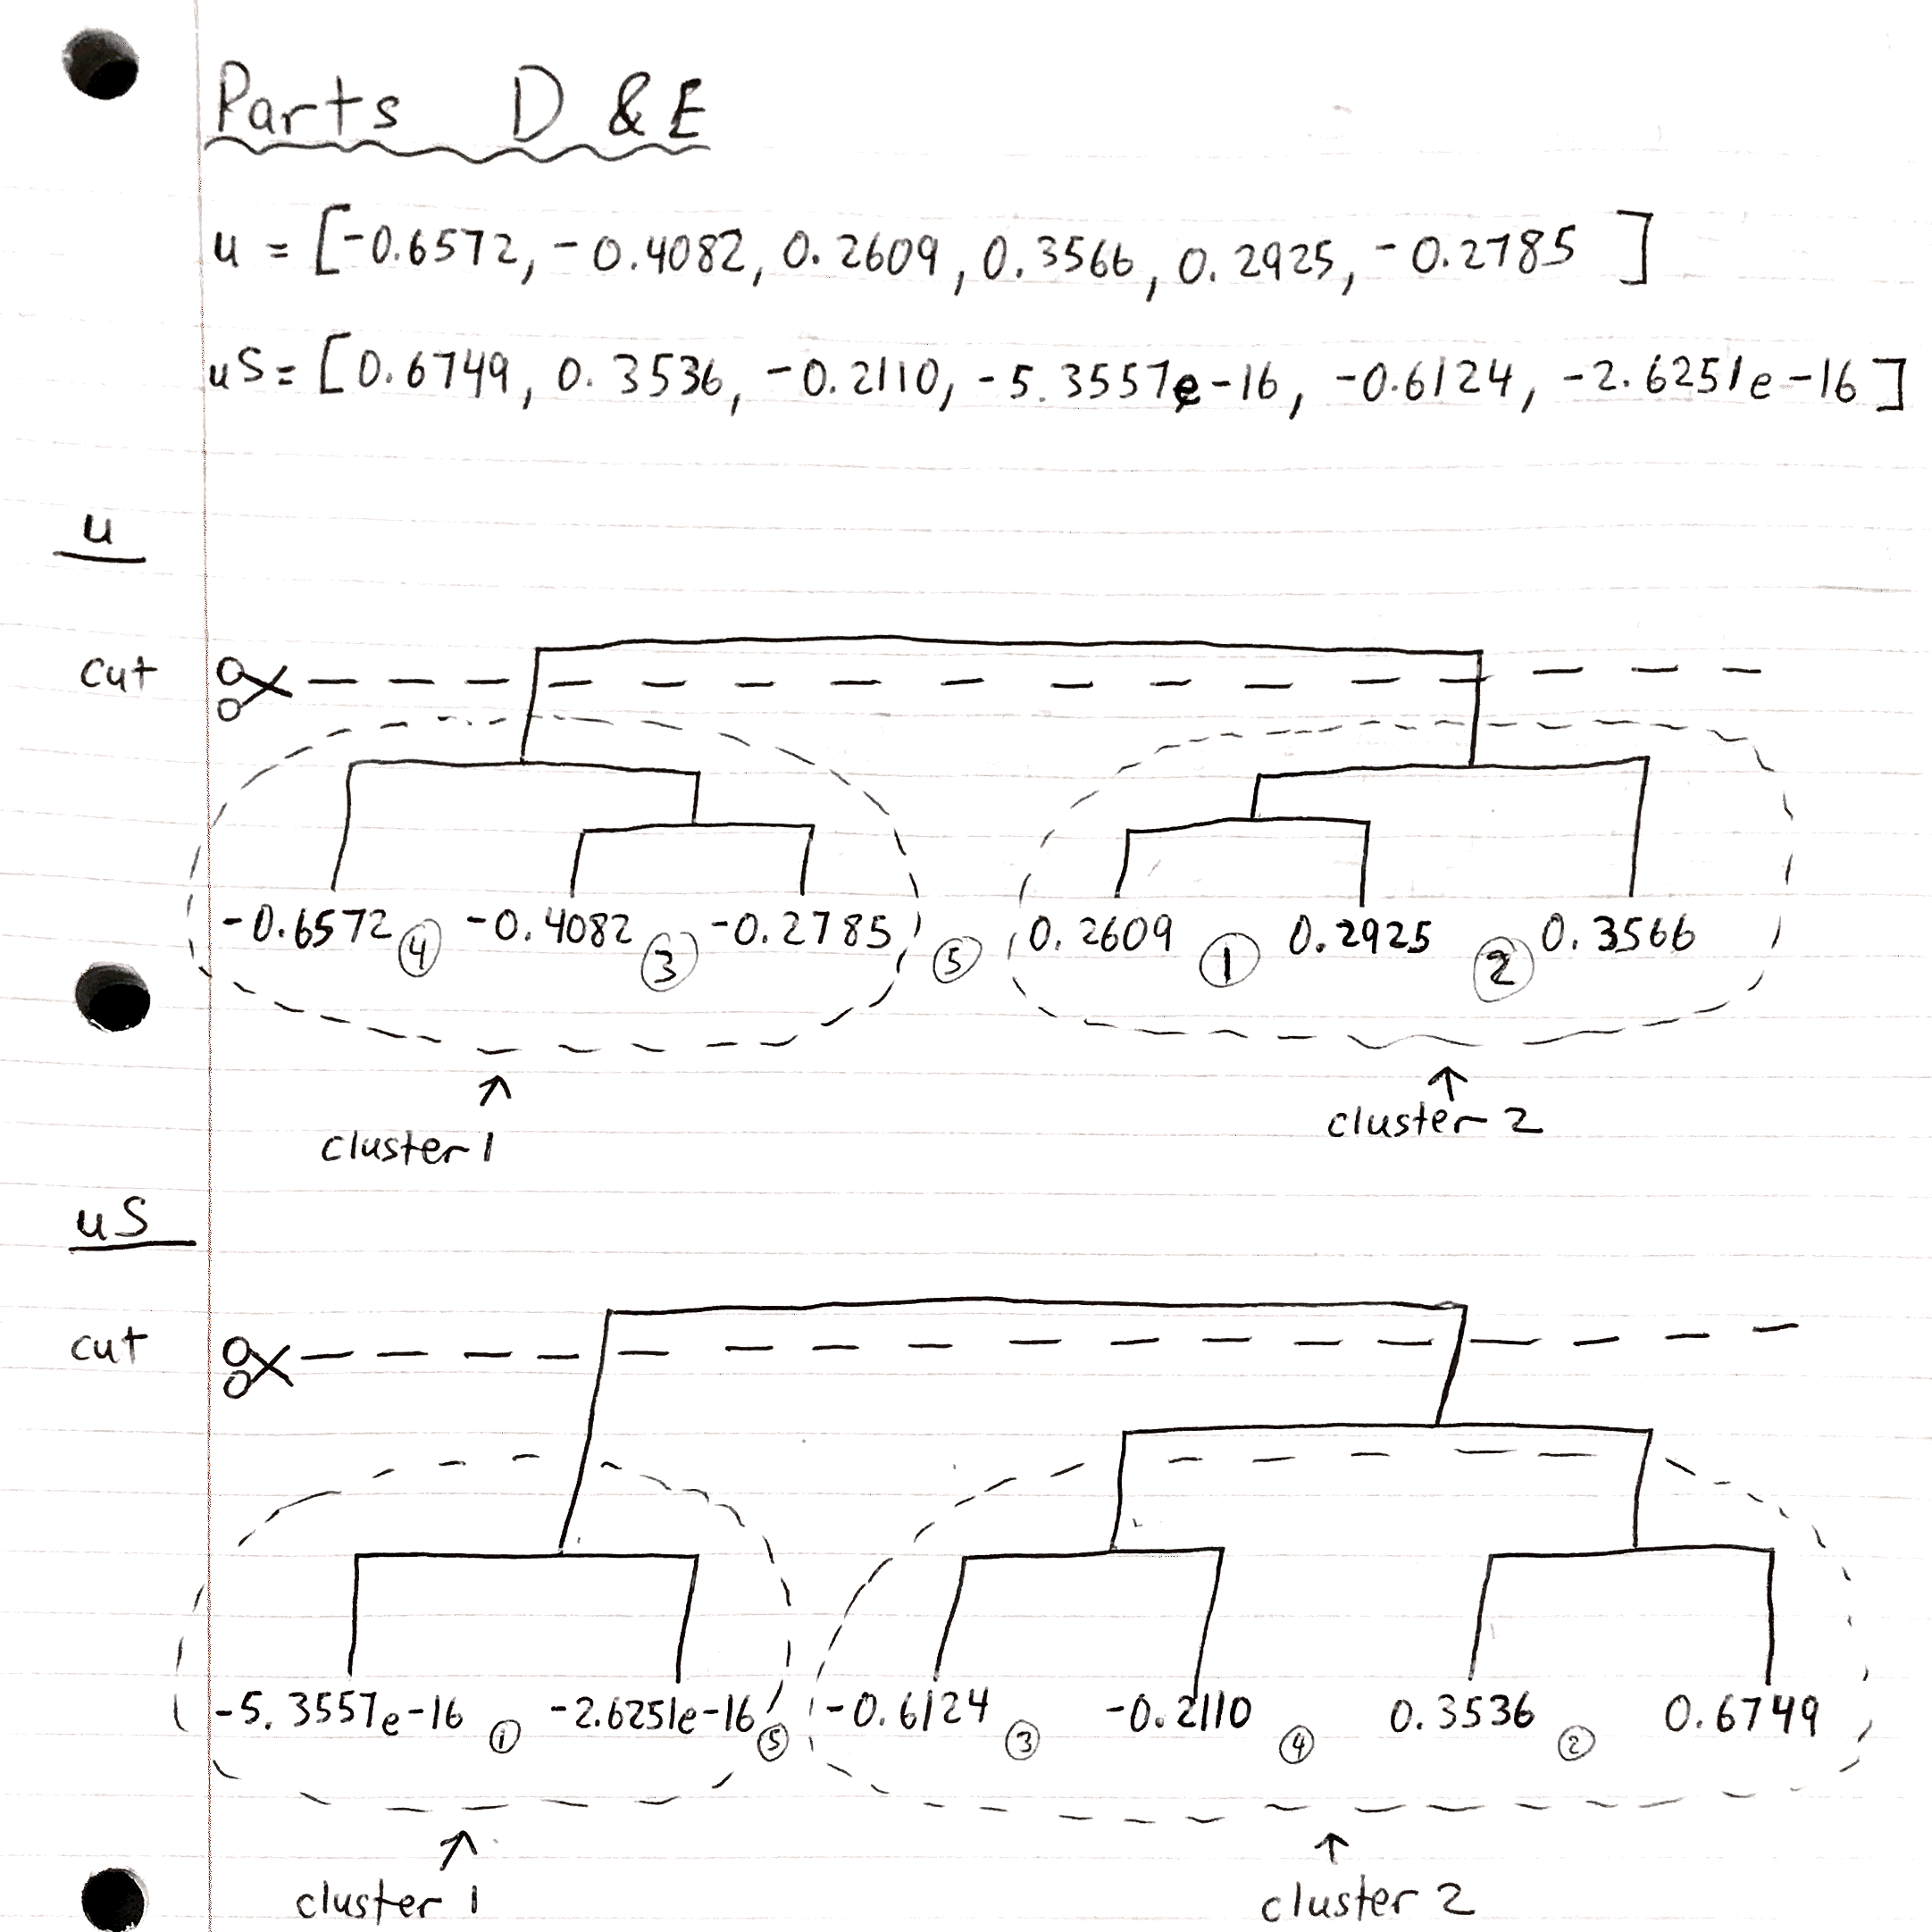 Parts D & E
u = [-0.6572, -0.4082, 0.2609, 0.3566, 0.2925, -0.2785 ]
uS = [0.6749, 0.3536, -0.2110, -5.3557e-16, -0.6124, -2.6251e-16]
u
cut
-0.6572 ④ -0.4082 ③ -0.2785 ⑤ 0.2609 ① 0.2925 ② 0.3566
cluster 1
cluster 2
uS
cut
-5.3557e-16 ① -2.6251e-16 ⑤ -0.6124 ③ -0.2110 ④ 0.3536 ② 0.6749
cluster 1
cluster 2